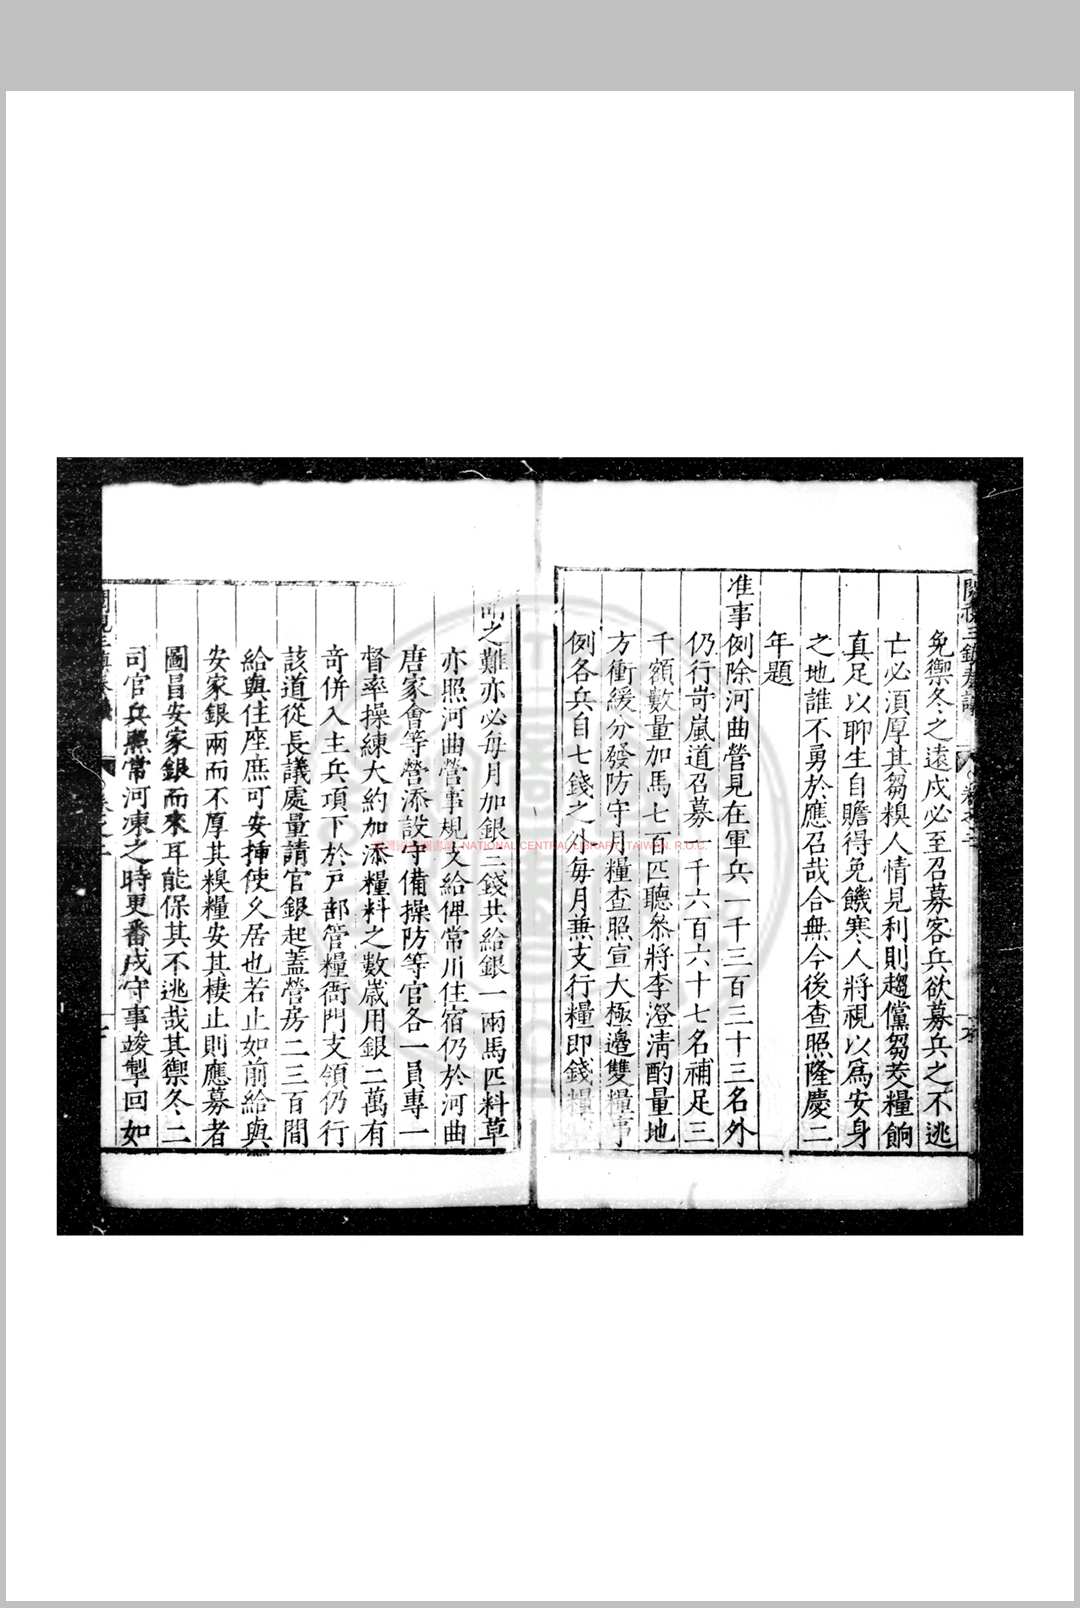 免禦冬之遠戍必至召募客兵欲募兵之不逃
亡必湏厚其芻糗人情見利則趨儻芻茭糧餉
真足以聊生自贍得免饑寒人將視以爲安身
之地誰不勇於應召哉合無今後查照隆慶二
年題
准事例除河曲營見在軍兵一千三百三十三名外
仍行岢嵐道召募一千六百六十七名補足三
千額數量加馬七百匹聽叅將李澄清酌量地
方衝緩分發防守月糧查照宣大極邊雙糧事
例各兵自七錢之外每月兼支行糧即錢糧
之難亦必每月加銀三錢共給銀一兩馬匹料草
亦照河曲營事規支給俾常川住宿仍於河曲
唐家會等營添設守備操防等官各一員專一
督率操練大約加添糧料之數歲用銀二萬有
奇併入主兵項下於戶部管糧衙門支領仍行
該道從長議處量請官銀起蓋營房二三百間
給與住座庶可安揷使久居也若止如前給與
安家銀兩而不厚其糗糧安其棲止則應募者
圖冒安家銀而來耳能保其不逃哉其禦冬二
司官兵照常河凍之時更番戍守事竣掣回如
臺灣國家圖書館 NATIONAL CENTRAL LIBRARY, TAIWAN, R.O.C.